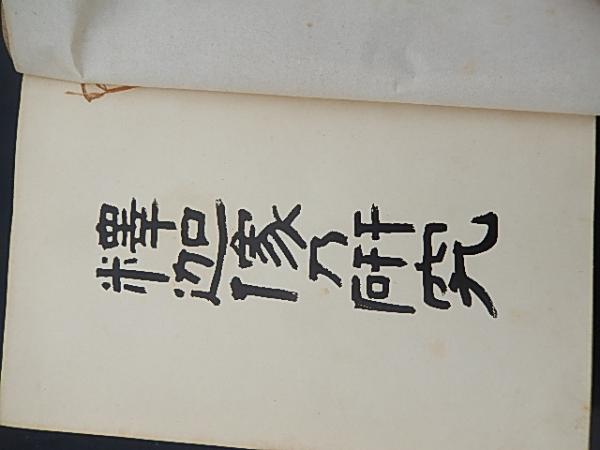 釋迦像乃研究